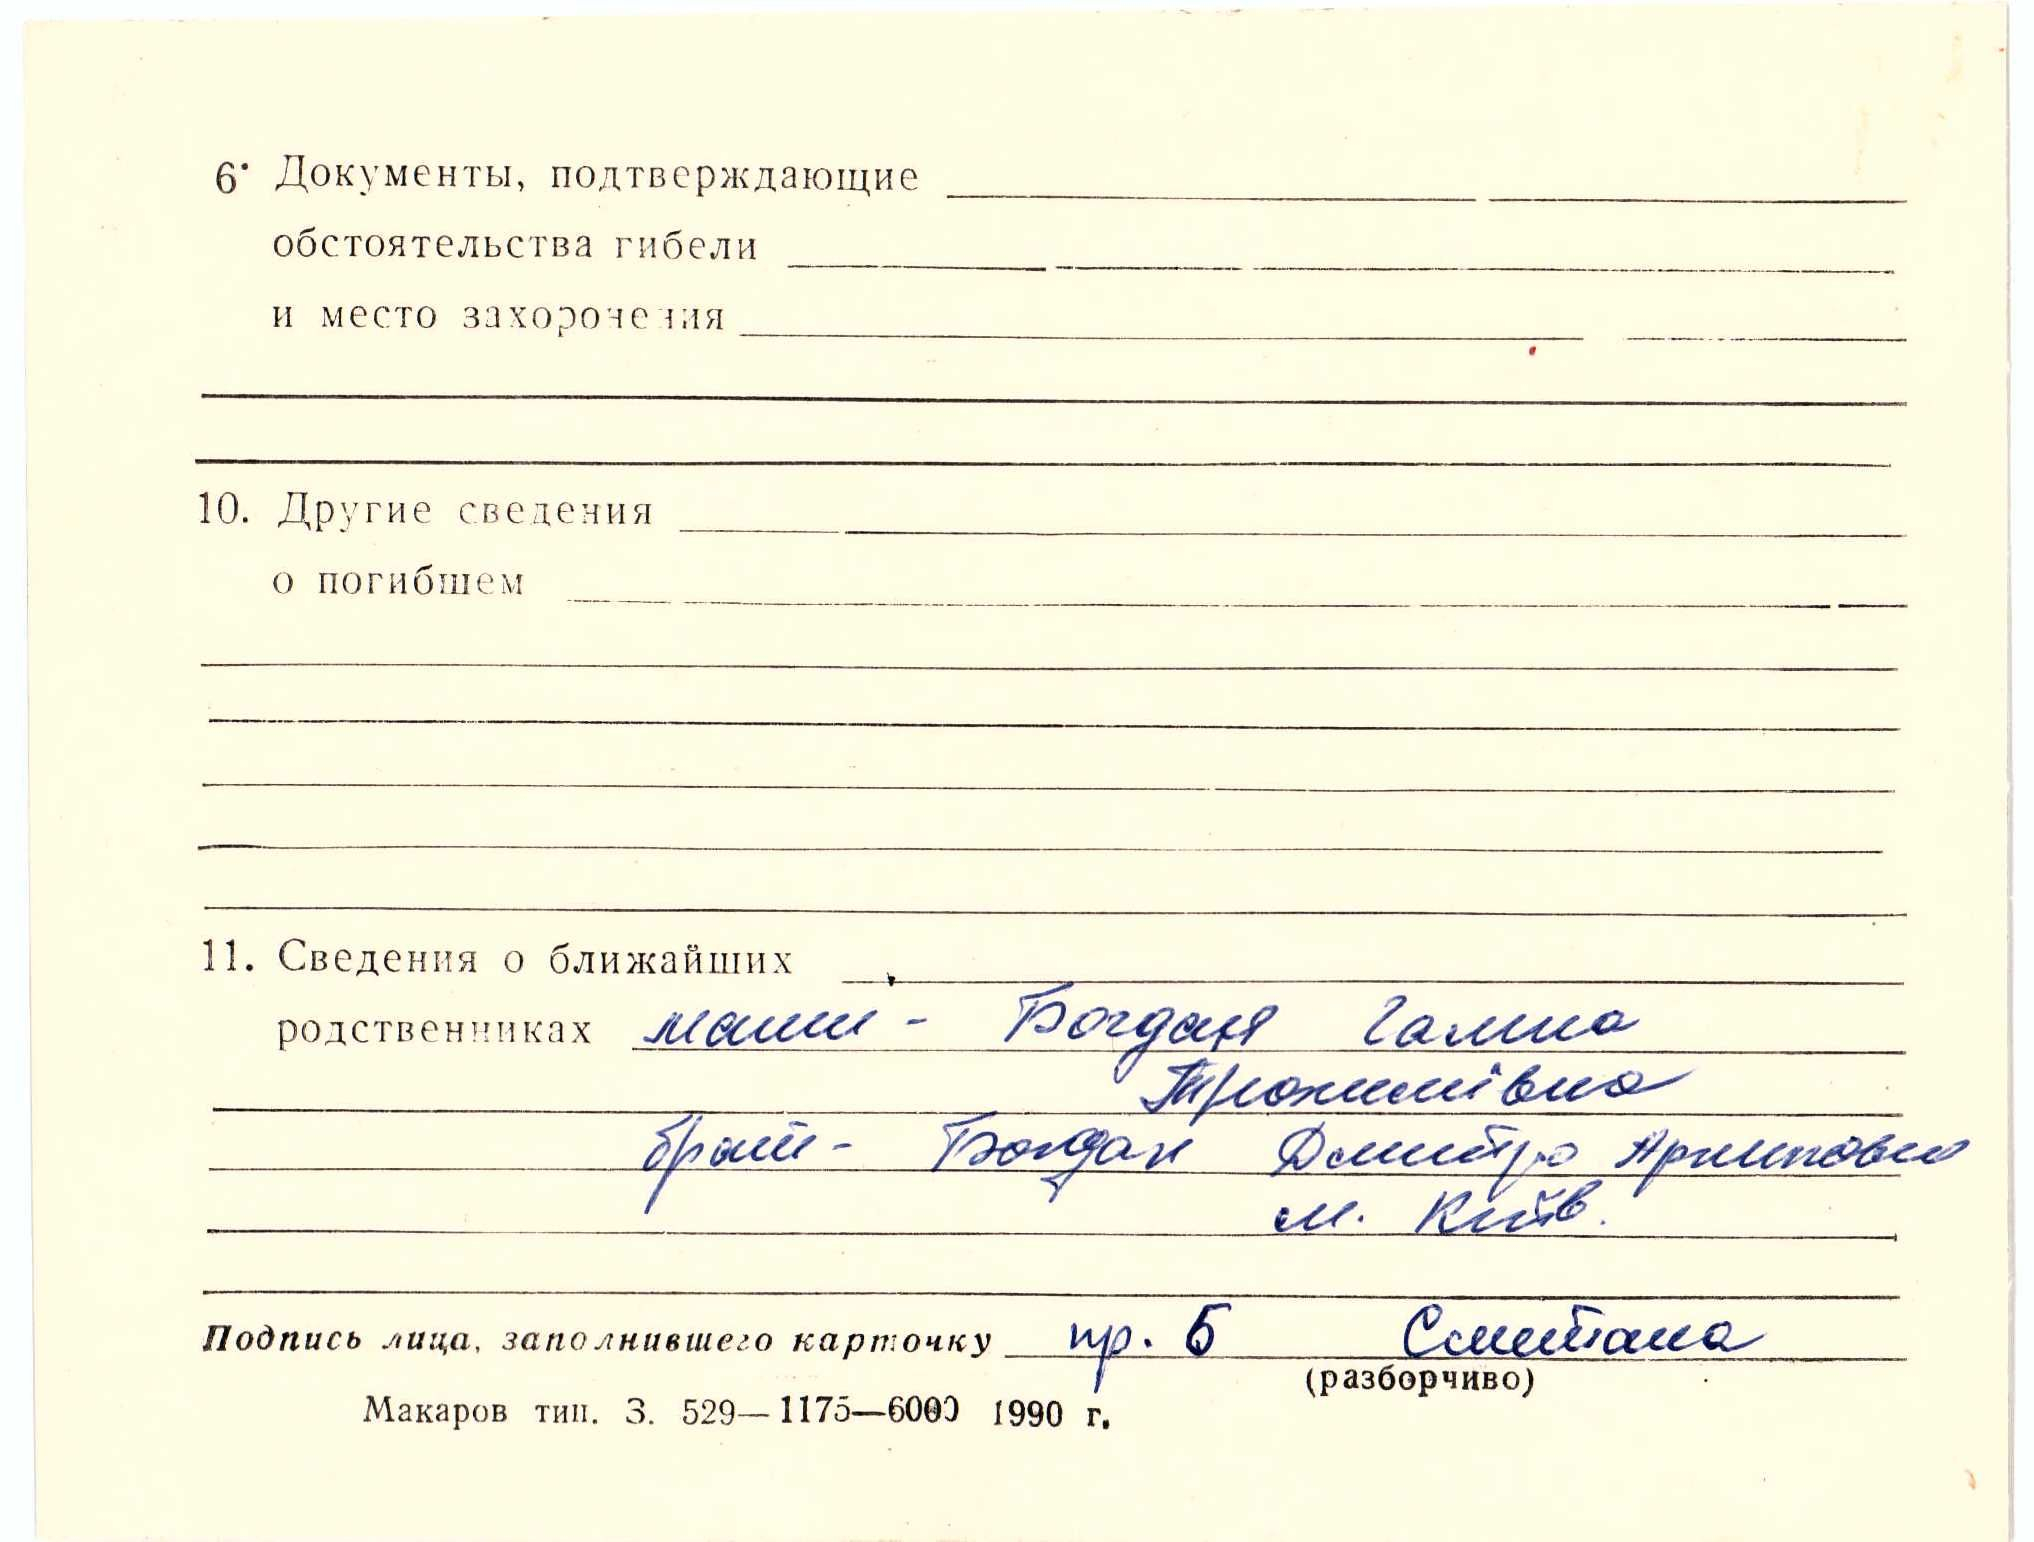 6. Документы, подтверждающие
обстоятельства гибели
и место захоронения
10. Другие сведения
о погибшем
11. Сведения о ближайших
родственниках мати - Богдан Галина
Трохимівна
брат - Богдан Дмитро Архипович
м. Київ.
Подпись лица, заполнившего карточку пр. Б Сметана
(разборчиво)
Макаров тип. З. 529—1175—6000 1990 г.